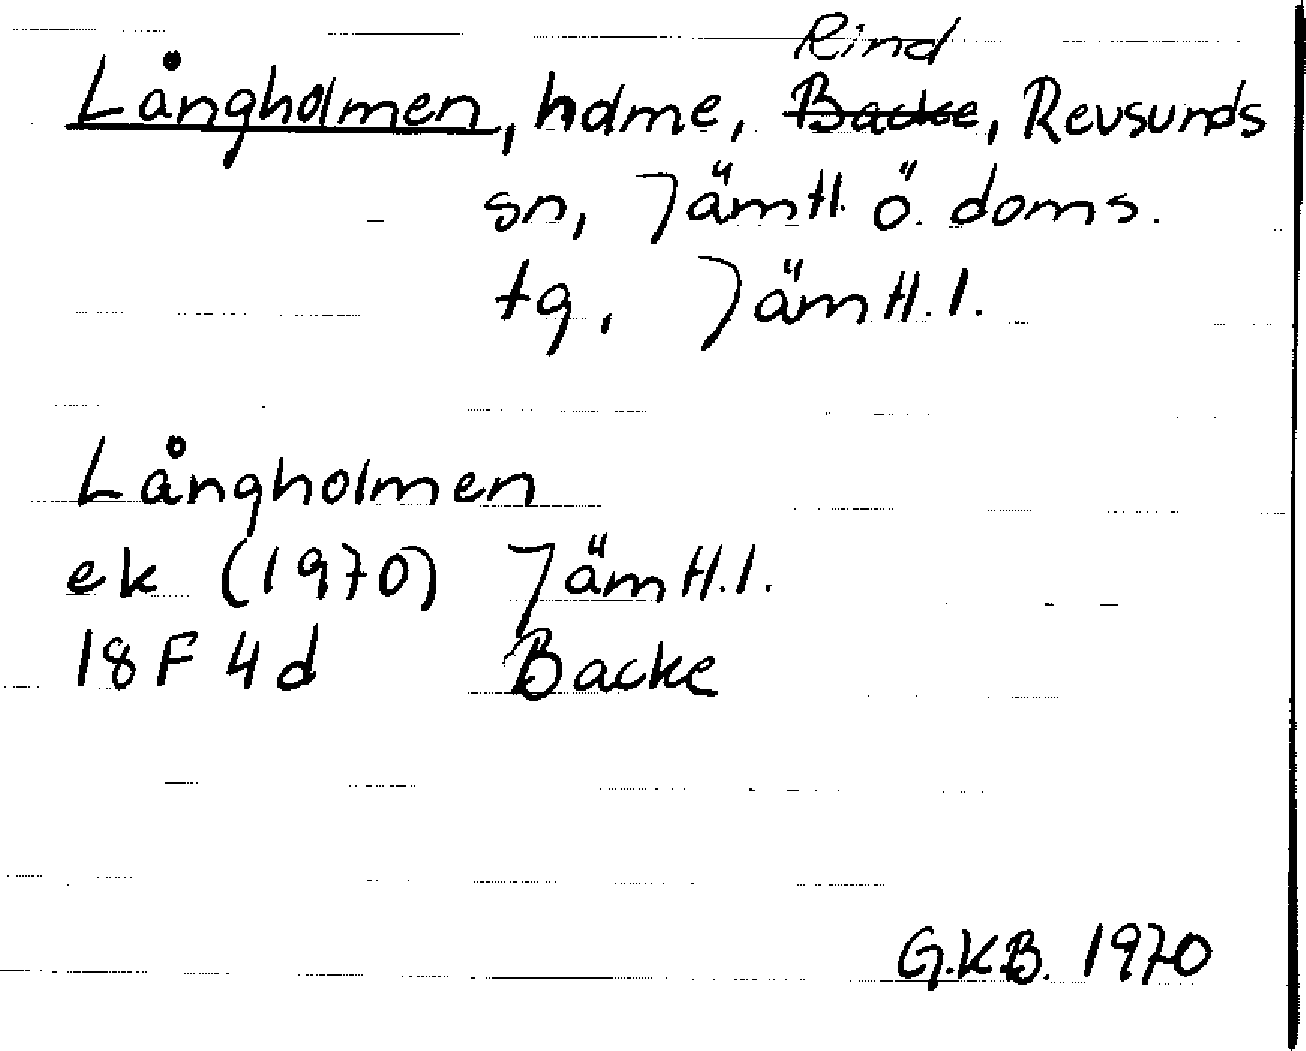 Rind
Långholmen, holme, Backe, Revsunds
sn, Jämtl. ö. doms.
tg, Jämtl. l.
Långholmen
ek (1970) Jämtl. l.
18 F 4 d Backe
G.K.B. 1970